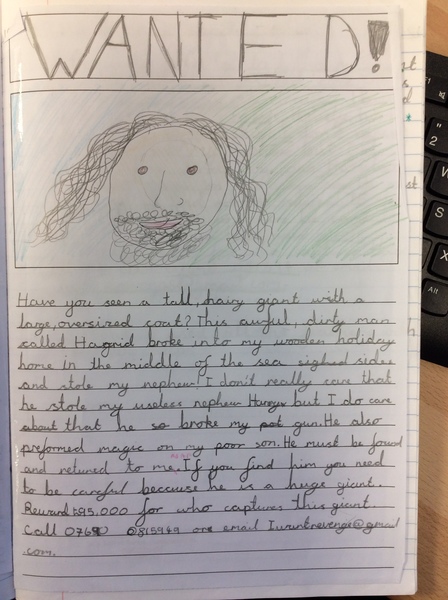 WANTED!
Have you seen a tall, hairy giant with a
large, oversized coat? This awful, dirty man
called Hagrid broke into my wooden holiday
home in the middle of the sea
and stole my nephew! I don't really care that
he stole my useless nephew but I do care
about that he so broke my gun. He also
preformed magic on my poor son. He must be found
and retuned to me. If you find him you need
to be careful because he is a huge giant.
Reward 595.000 for who captures this giant.
Call email Iwantrevenge@gmail
.com.